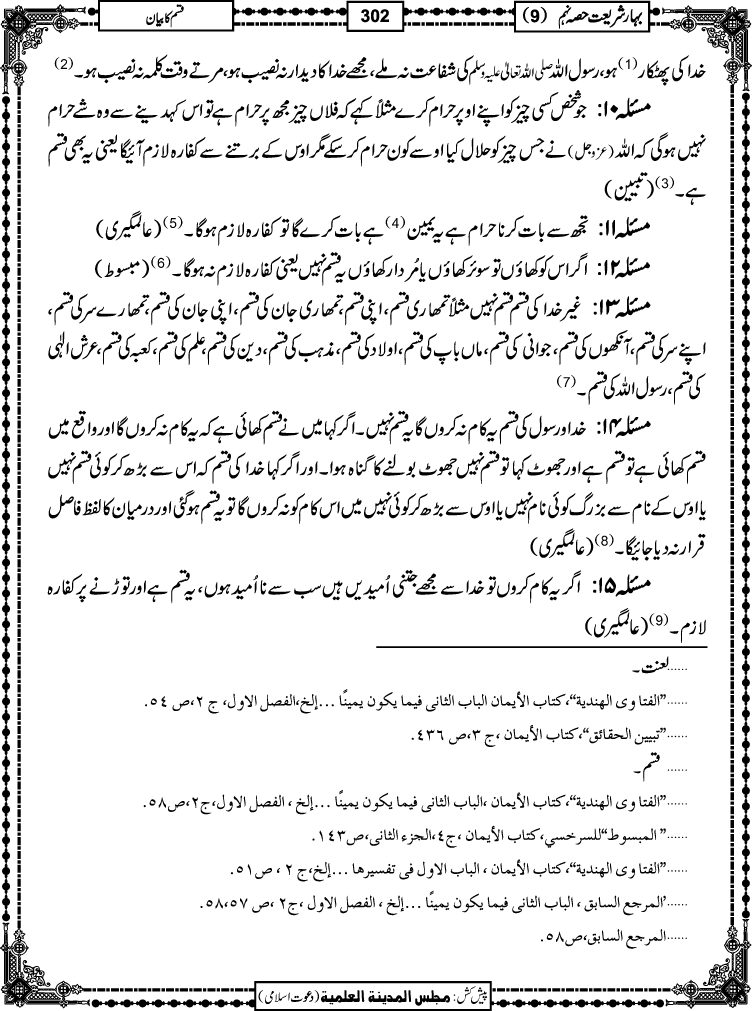 بہارِ شریعت حصہ نہم (9)
302
قسم کا بیان
خدا کی پھٹکار(1) ہو، رسول اللہ صلی اللہ تعالیٰ علیہ وسلم کی شفاعت نہ ملے، مجھے خدا کا دیدار نہ نصیب ہو، مرتے وقت کلمہ نہ نصیب ہو۔(2)
مسئلہ ۱۰: جو شخص کسی چیز کو اپنے اوپر حرام کرے مثلاً کہے کہ فلاں چیز مجھ پر حرام ہے تو اس کہدینے سے وہ شے حرام
نہیں ہوگی کہ اللہ (عزوجل) نے جس چیز کو حلال کیا اوسے کون حرام کرسکے مگر اوس کے برتنے سے کفارہ لازم آئیگا یعنی یہ بھی قسم
ہے۔(3) (تبیین)
مسئلہ ۱۱: تجھ سے بات کرنا حرام ہے یہ یمین(4) ہے بات کرے گا تو کفارہ لازم ہوگا۔(5) (عالمگیری)
مسئلہ ۱۲: اگر اس کو کھاؤں تو سوئر کھاؤں یا مُردار کھاؤں یہ قسم نہیں یعنی کفارہ لازم نہ ہوگا۔(6) (مبسوط)
مسئلہ ۱۳: غیر خدا کی قسم قسم نہیں مثلاً تمھاری قسم، اپنی قسم، تمھاری جان کی قسم، اپنی جان کی قسم، تمھارے سر کی قسم،
اپنے سر کی قسم، آنکھوں کی قسم، جوانی کی قسم، ماں باپ کی قسم، اولاد کی قسم، مذہب کی قسم، دین کی قسم، علم کی قسم، کعبہ کی قسم، عرش الٰہی
کی قسم، رسول اللہ کی قسم۔(7)
مسئلہ ۱۴: خدا و رسول کی قسم یہ کام نہ کروں گا یہ قسم نہیں۔ اگر کہا میں نے قسم کھائی ہے کہ یہ کام نہ کروں گا اور واقع میں
قسم کھائی ہے تو قسم ہے اور جھوٹ کہا تو قسم نہیں جھوٹ بولنے کا گناہ ہوا۔ اور اگر کہا خدا کی قسم کہ اس سے بڑھ کر کوئی قسم نہیں
یا اوس کے نام سے بزرگ کوئی نام نہیں یا اوس سے بڑھ کر کوئی نہیں میں اس کام کو نہ کروں گا تو یہ قسم ہوگئی اور درمیان کا لفظ فاصل
قرار نہ دیا جائیگا۔(8) (عالمگیری)
مسئلہ ۱۵: اگر یہ کام کروں تو خدا سے مجھے جتنی اُمیدیں ہیں سب سے نا اُمید ہوں، یہ قسم ہے اور توڑنے پر کفارہ
لازم۔(9) (عالمگیری)
......لعنت۔
......”الفتاوی الهندیة“،کتاب الأیمان الباب الثانی فیما یکون یمینًا ...إلخ،الفصل الاول، ج ٢،ص ٥٤.
......”تبیین الحقائق“،کتاب الأیمان ،ج ٣،ص ٤٣٦.
...... قسم۔
......”الفتاوی الهندیة“،کتاب الأیمان ،الباب الثانی فیما یکون یمینًا ...إلخ ، الفصل الاول،ج٢،ص٥٨.
......” المبسوط“للسرخسي،کتاب الأیمان ،ج٤،الجزء الثانی،ص١٤٣.
......”الفتاوی الهندیة“،کتاب الأیمان ، الباب الاول فی تفسیرها ...إلخ،ج ٢ ، ص٥١.
......المرجع السابق ، الباب الثانی فیما یکون یمینًا ...إلخ ، الفصل الاول ،ج٢ ،ص ٥٨،٥٧.
......المرجع السابق،ص٥٨.
پیش کش: مجلس المدینة العلمیة (دعوت اسلامی)